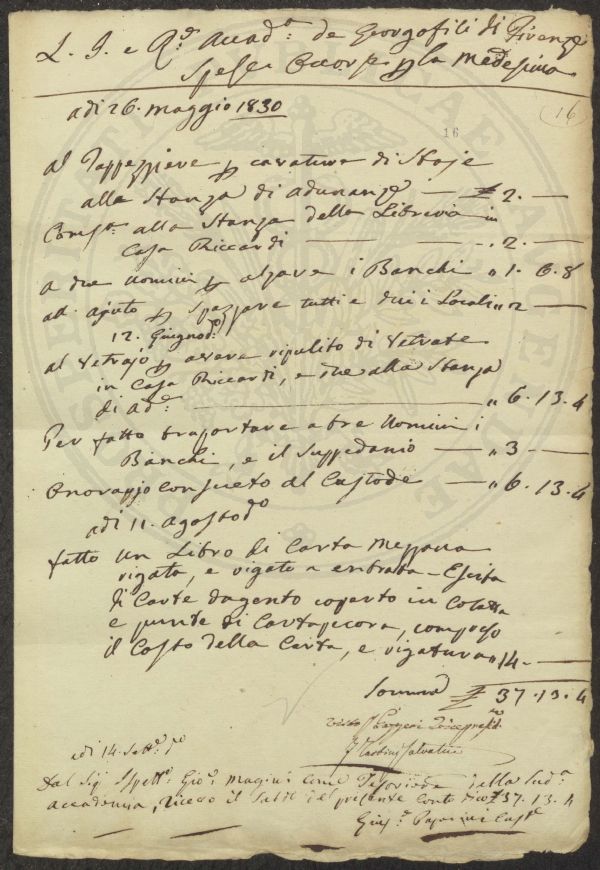 L. I. e R.ᵉ Accad.ᵃ de Georgofili di Firenze
Spese Occorse p la Medesima
adi 26. Maggio 1830
16
16
Al Tappezziere p cavature di Stoje
alla Stanza di Adunanze — £ 2. —
Comp.ᵃ alla Stanza della Libreria in
Casa Riccardi — „ 2. —
A due Uomini p alzare i Banchi „ 1. 6. 8
ad. ajuto p Spazzare tutti e due i Locali „ 2 —
12. Giugno dº
Al Vetrajo p avere ripulito di Vetrate
in Casa Riccardi, e due alla Stanza
di Ad.ᵉ — „ 6. 13. 4
Per fatto trasportare a tre Uomini i
Banchi, e il Suppedanio — „ 3 —
Onorario consueto al Custode — „ 6. 13. 4
adi 11. Agosto dº
fatto un Libro di Carta Mezzana
rigata, e rigato a entrata Escita
di Carte dugento coperto in Colatta
e punte di Cartapecora, compreso
il Costo della Carta, e rigatura „ 14. —
Somma £ 37. 13. 4
Visto
Tartini Salvatici
adi 14. Sett.ᵉ dº
Dal Sig. Gio. Magini come Tesoriere della Sud.ᵃ
Accademia, ricevo il Saldo del presente Conto £ 37. 13. 4